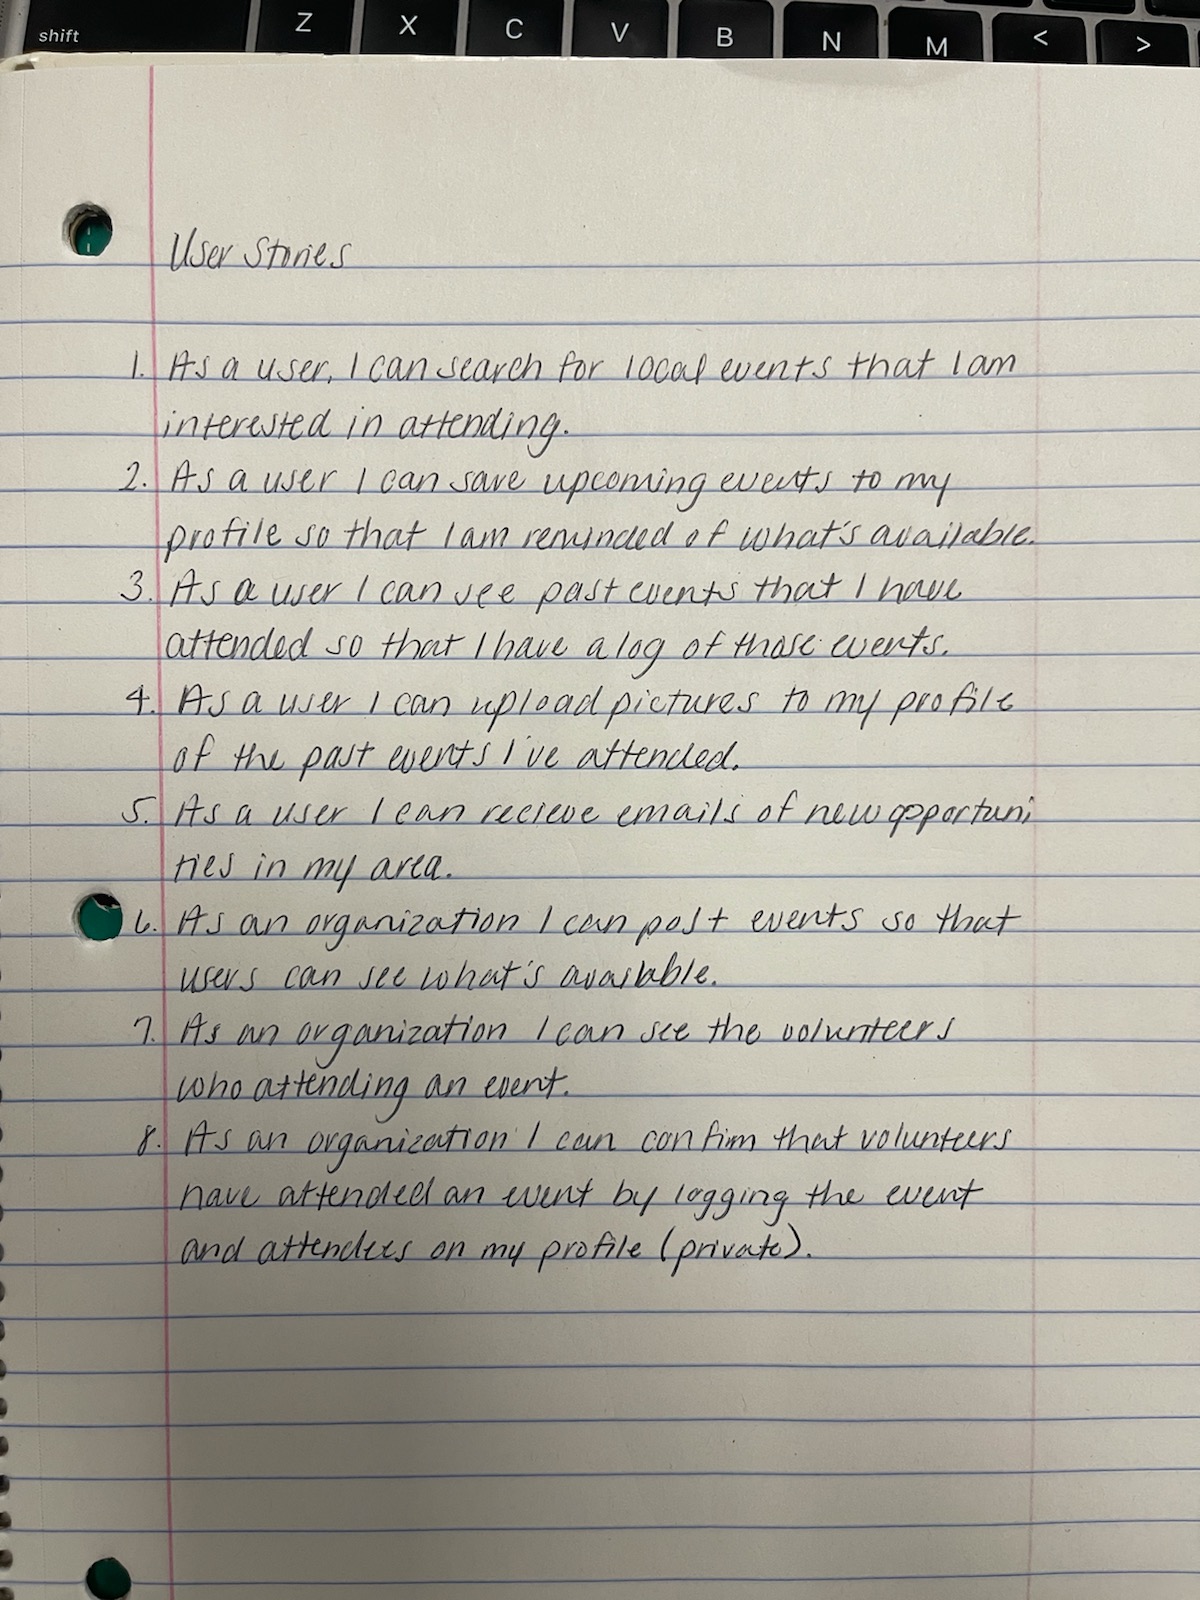 shift Z X C V B N M < >
User Stories
1. As a user, I can search for local events that I am
interested in attending.
2. As a user I can save upcoming events to my
profile so that I am reminded of what's available.
3. As a user I can see past events that I have
attended so that I have a log of those events.
4. As a user I can upload pictures to my profile
of the past events I've attended.
5. As a user I can recieve emails of new opportuni
ties in my area.
6. As an organization I can post events so that
users can see what's available.
7. As an organization I can see the volunteers
who attending an event.
8. As an organization I can confim that volunteers
have attended an event by logging the event
and attendees on my profile (private).